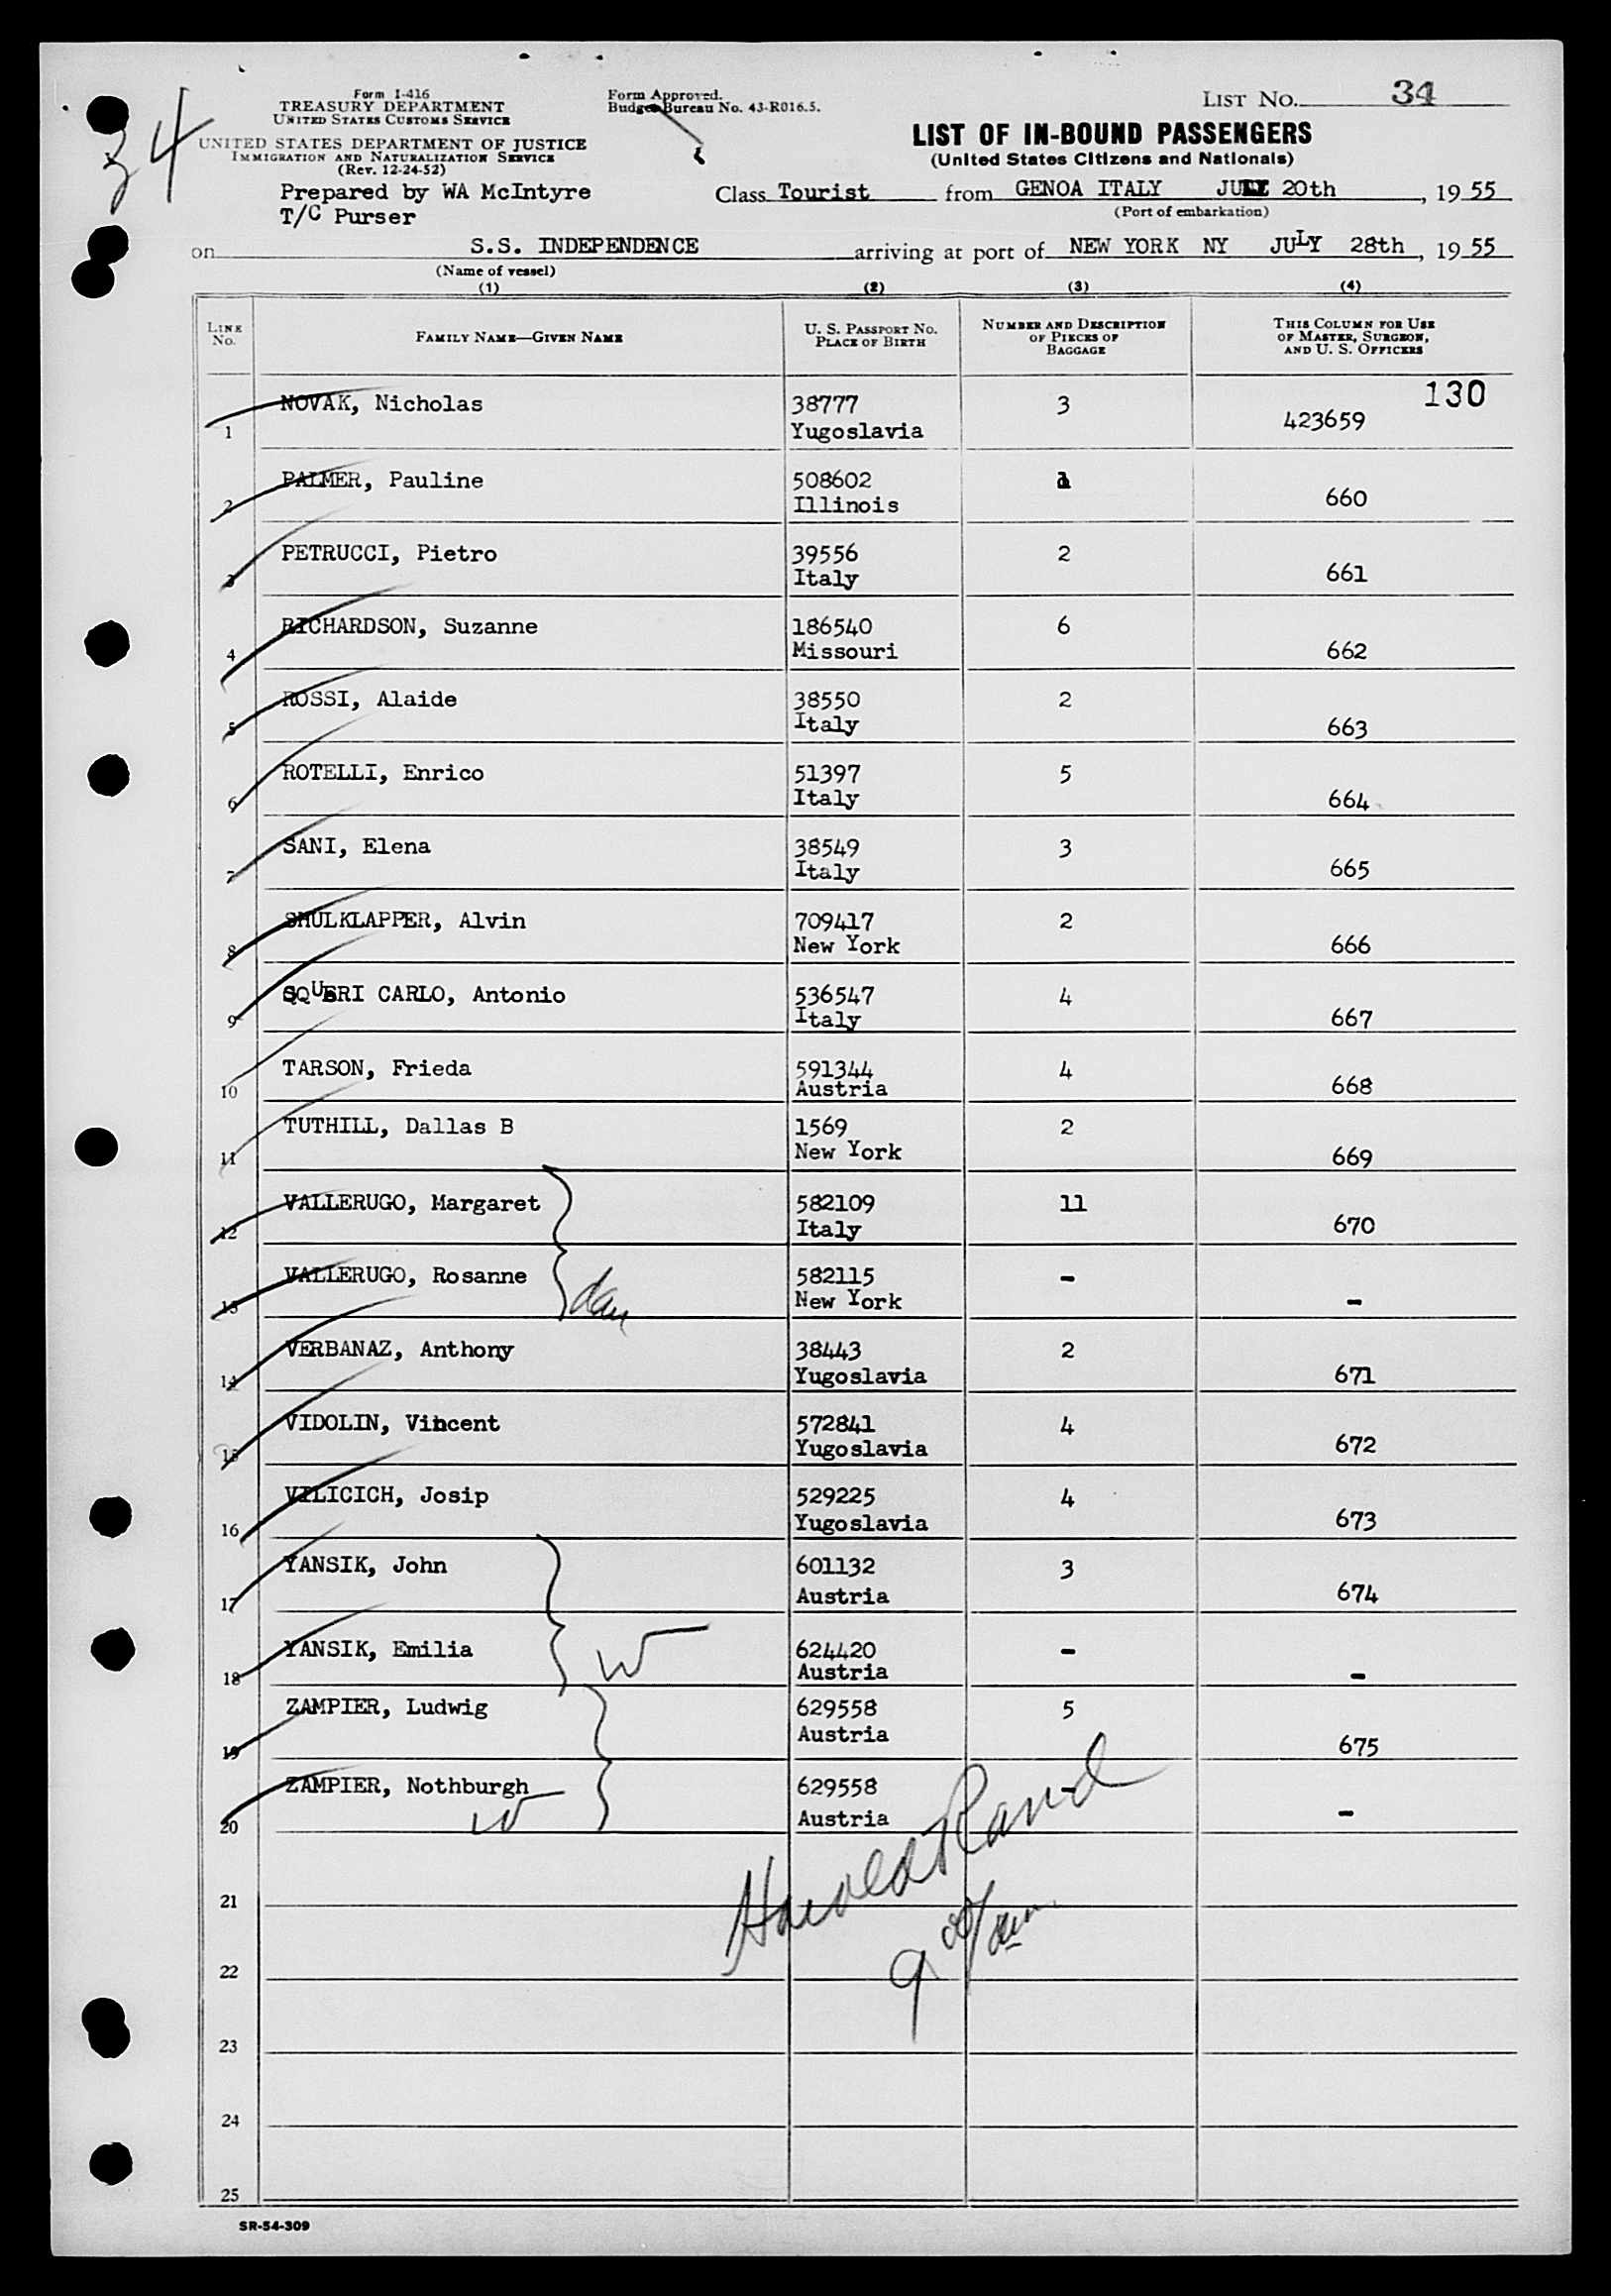 34
Form I-416
TREASURY DEPARTMENT
UNITED STATES CUSTOMS SERVICE
UNITED STATES DEPARTMENT OF JUSTICE
IMMIGRATION AND NATURALIZATION SERVICE
(Rev. 12-24-52)
Prepared by WA McIntyre
T/C Purser
Form Approved.
Budget Bureau No. 43-R016.5.
LIST NO. 34
LIST OF IN-BOUND PASSENGERS
(United States Citizens and Nationals)
Class Tourist from GENOA ITALY JULY 20th, 19 55
(Port of embarkation)
on S.S. INDEPENDENCE arriving at port of NEW YORK NY JULY 28th, 19 55
(Name of vessel)
(1) (2) (3) (4)
LINE NO. FAMILY NAME—GIVEN NAME U. S. PASSPORT NO. PLACE OF BIRTH NUMBER AND DESCRIPTION OF PIECES OF BAGGAGE THIS COLUMN FOR USE OF MASTER, SURGEON, AND U. S. OFFICERS
130
1 NOVAK, Nicholas 38777 Yugoslavia 3 423659
2 PALMER, Pauline 508602 Illinois 660
3 PETRUCCI, Pietro 39556 Italy 2 661
4 RICHARDSON, Suzanne 186540 Missouri 6 662
5 ROSSI, Alaide 38550 Italy 2 663
6 ROTELLI, Enrico 51397 Italy 5 664
7 SANI, Elena 38549 Italy 3 665
8 SHULKLAPPER, Alvin 709417 New York 2 666
9 SQUERI CARLO, Antonio 536547 Italy 4 667
10 TARSON, Frieda 591344 Austria 4 668
11 TUTHILL, Dallas B 1569 New York 2 669
12 VALLERUGO, Margaret 582109 Italy 11 670
13 VALLERUGO, Rosanne dau 582115 New York - -
14 VERBANAZ, Anthony 38443 Yugoslavia 2 671
15 VIDOLIN, Vincent 572841 Yugoslavia 4 672
16 VILICICH, Josip 529225 Yugoslavia 4 673
17 YANSIK, John 601132 Austria 3 674
18 YANSIK, Emilia W 624420 Austria - -
19 ZAMPIER, Ludwig 629558 Austria 5 675
20 ZAMPIER, Nothburgh W 629558 Austria - -
Harold Rand
21
22
23
24
25
SR-54-309